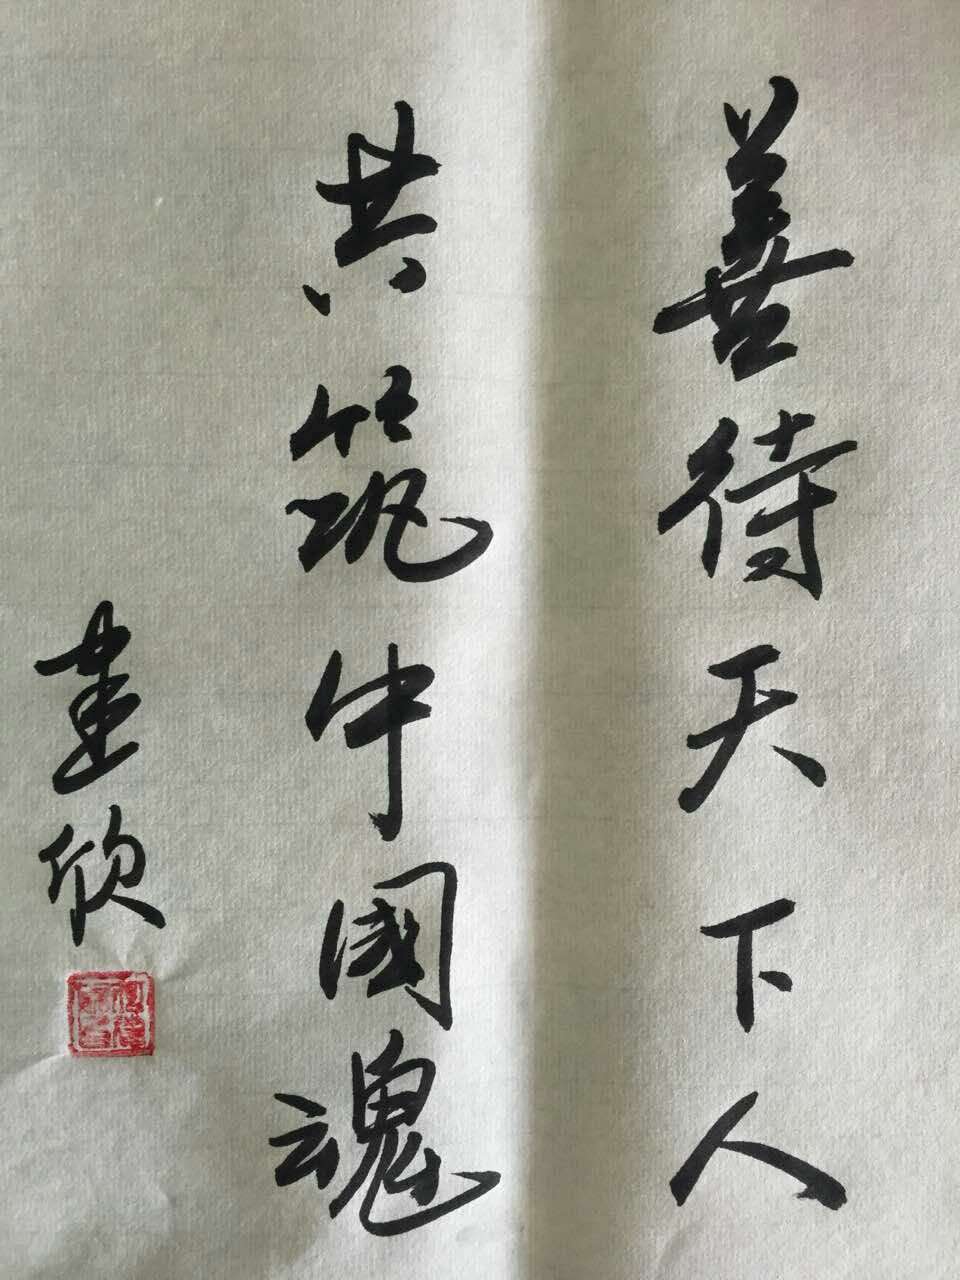 善待天下人
共筑中國魂
建欣